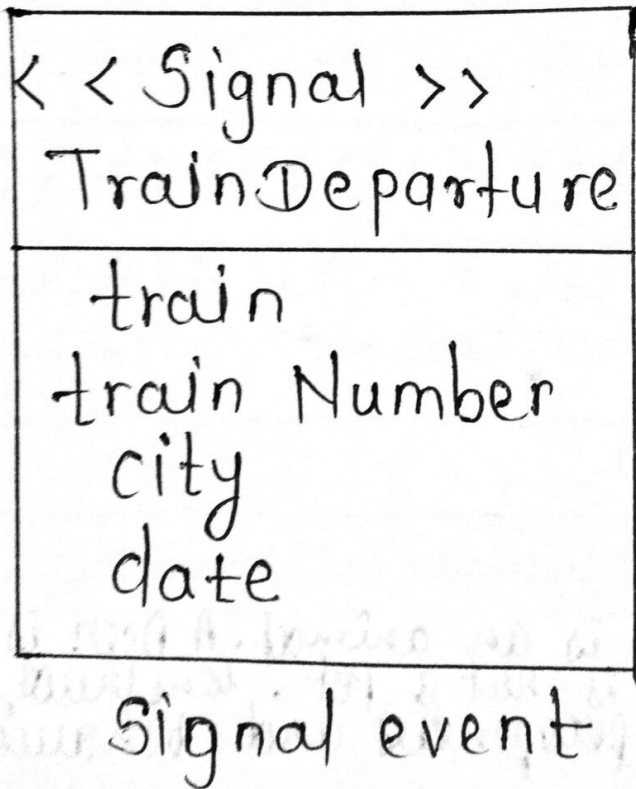 < < Signal >>
TrainDeparture
train
train Number
city
date
Signal event